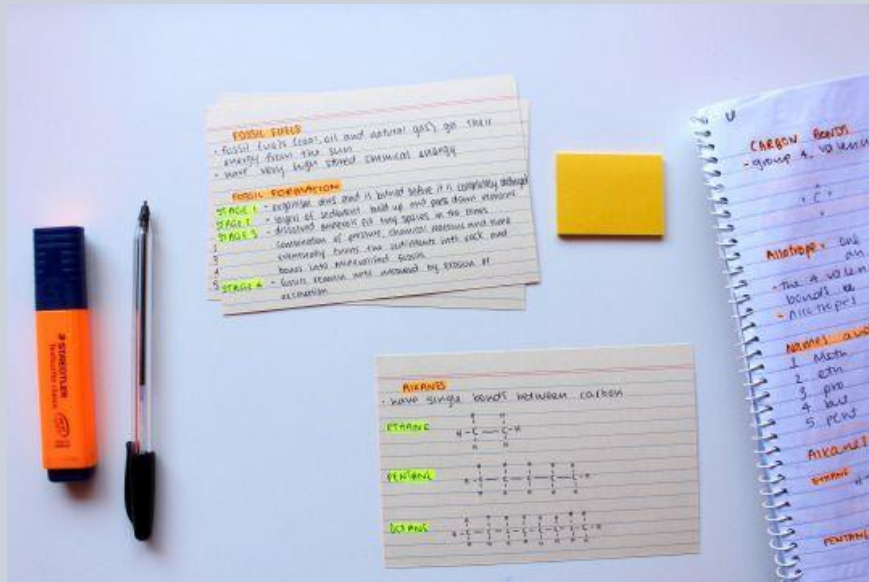 FOSSIL FUELS
• fossil fuels (coal, oil and natural gas) get their
energy from the sun
• have very high stored chemical energy
FOSSIL FORMATION
STAGE 1 - organism dies and is buried before it is completely destroyed
STAGE 2 - layers of sediment build up and press down remains
STAGE 3 - dissolved minerals fill tiny spaces in the bones
combination of pressure, chemical reactions and time
eventually turns the sediments into rock and
bones into mineralised fossils
STAGE 4 - fossils remain until uncovered by erosion or
excavation
STAEDTLER
ALKANES
• have single bonds between carbon
ETHANE
H H
H - C - C - H
H H
PENTANE
H - C - C - C - C - C - H
OCTANE
H - C - C - C - C - C - C - C - C - H
CARBON BONDS
- group 4, valen
C
Allotrope: one
an
- the 4 valen
bonds be
- allotropes
Names
1 Meth
2 eth
3 pro
4 but
5 pent
Alkanes
ETHANE
H
PENTANE